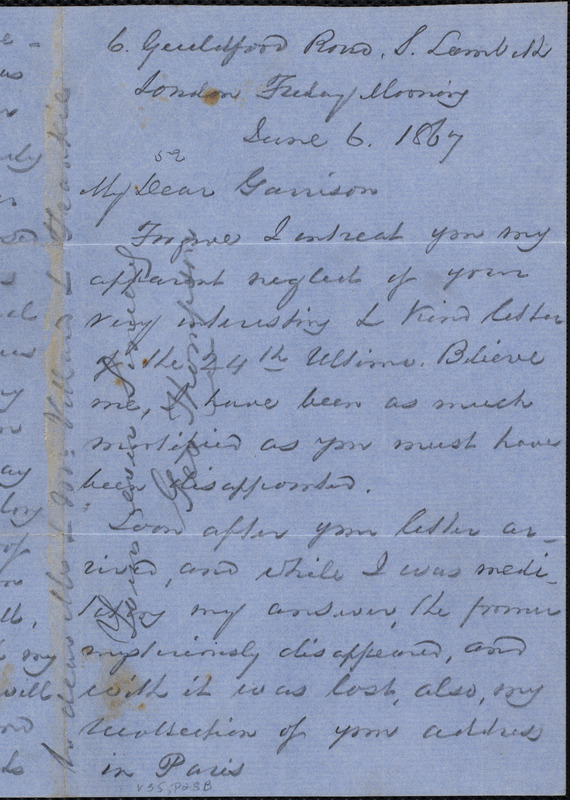 6. Guildford Road, S. Lambeth
London Friday Morning
June 6. 1867
52
My Dear Garrison
Forgive I intreat you my
apparent neglect of your
very interesting & kind letter
of the 24th Ultimo. Believe
me, I have been as much
mortified as you must have
been disappointed.
Soon after your letter ar-
rived, and while I was medi-
tating my answer, the former
mysteriously disappeared, and
with it was lost, also, my
recollection of your address
in Paris
V35, P28B
Yours ever
Geo Thompson
to dear Mr & Mrs & Frankie